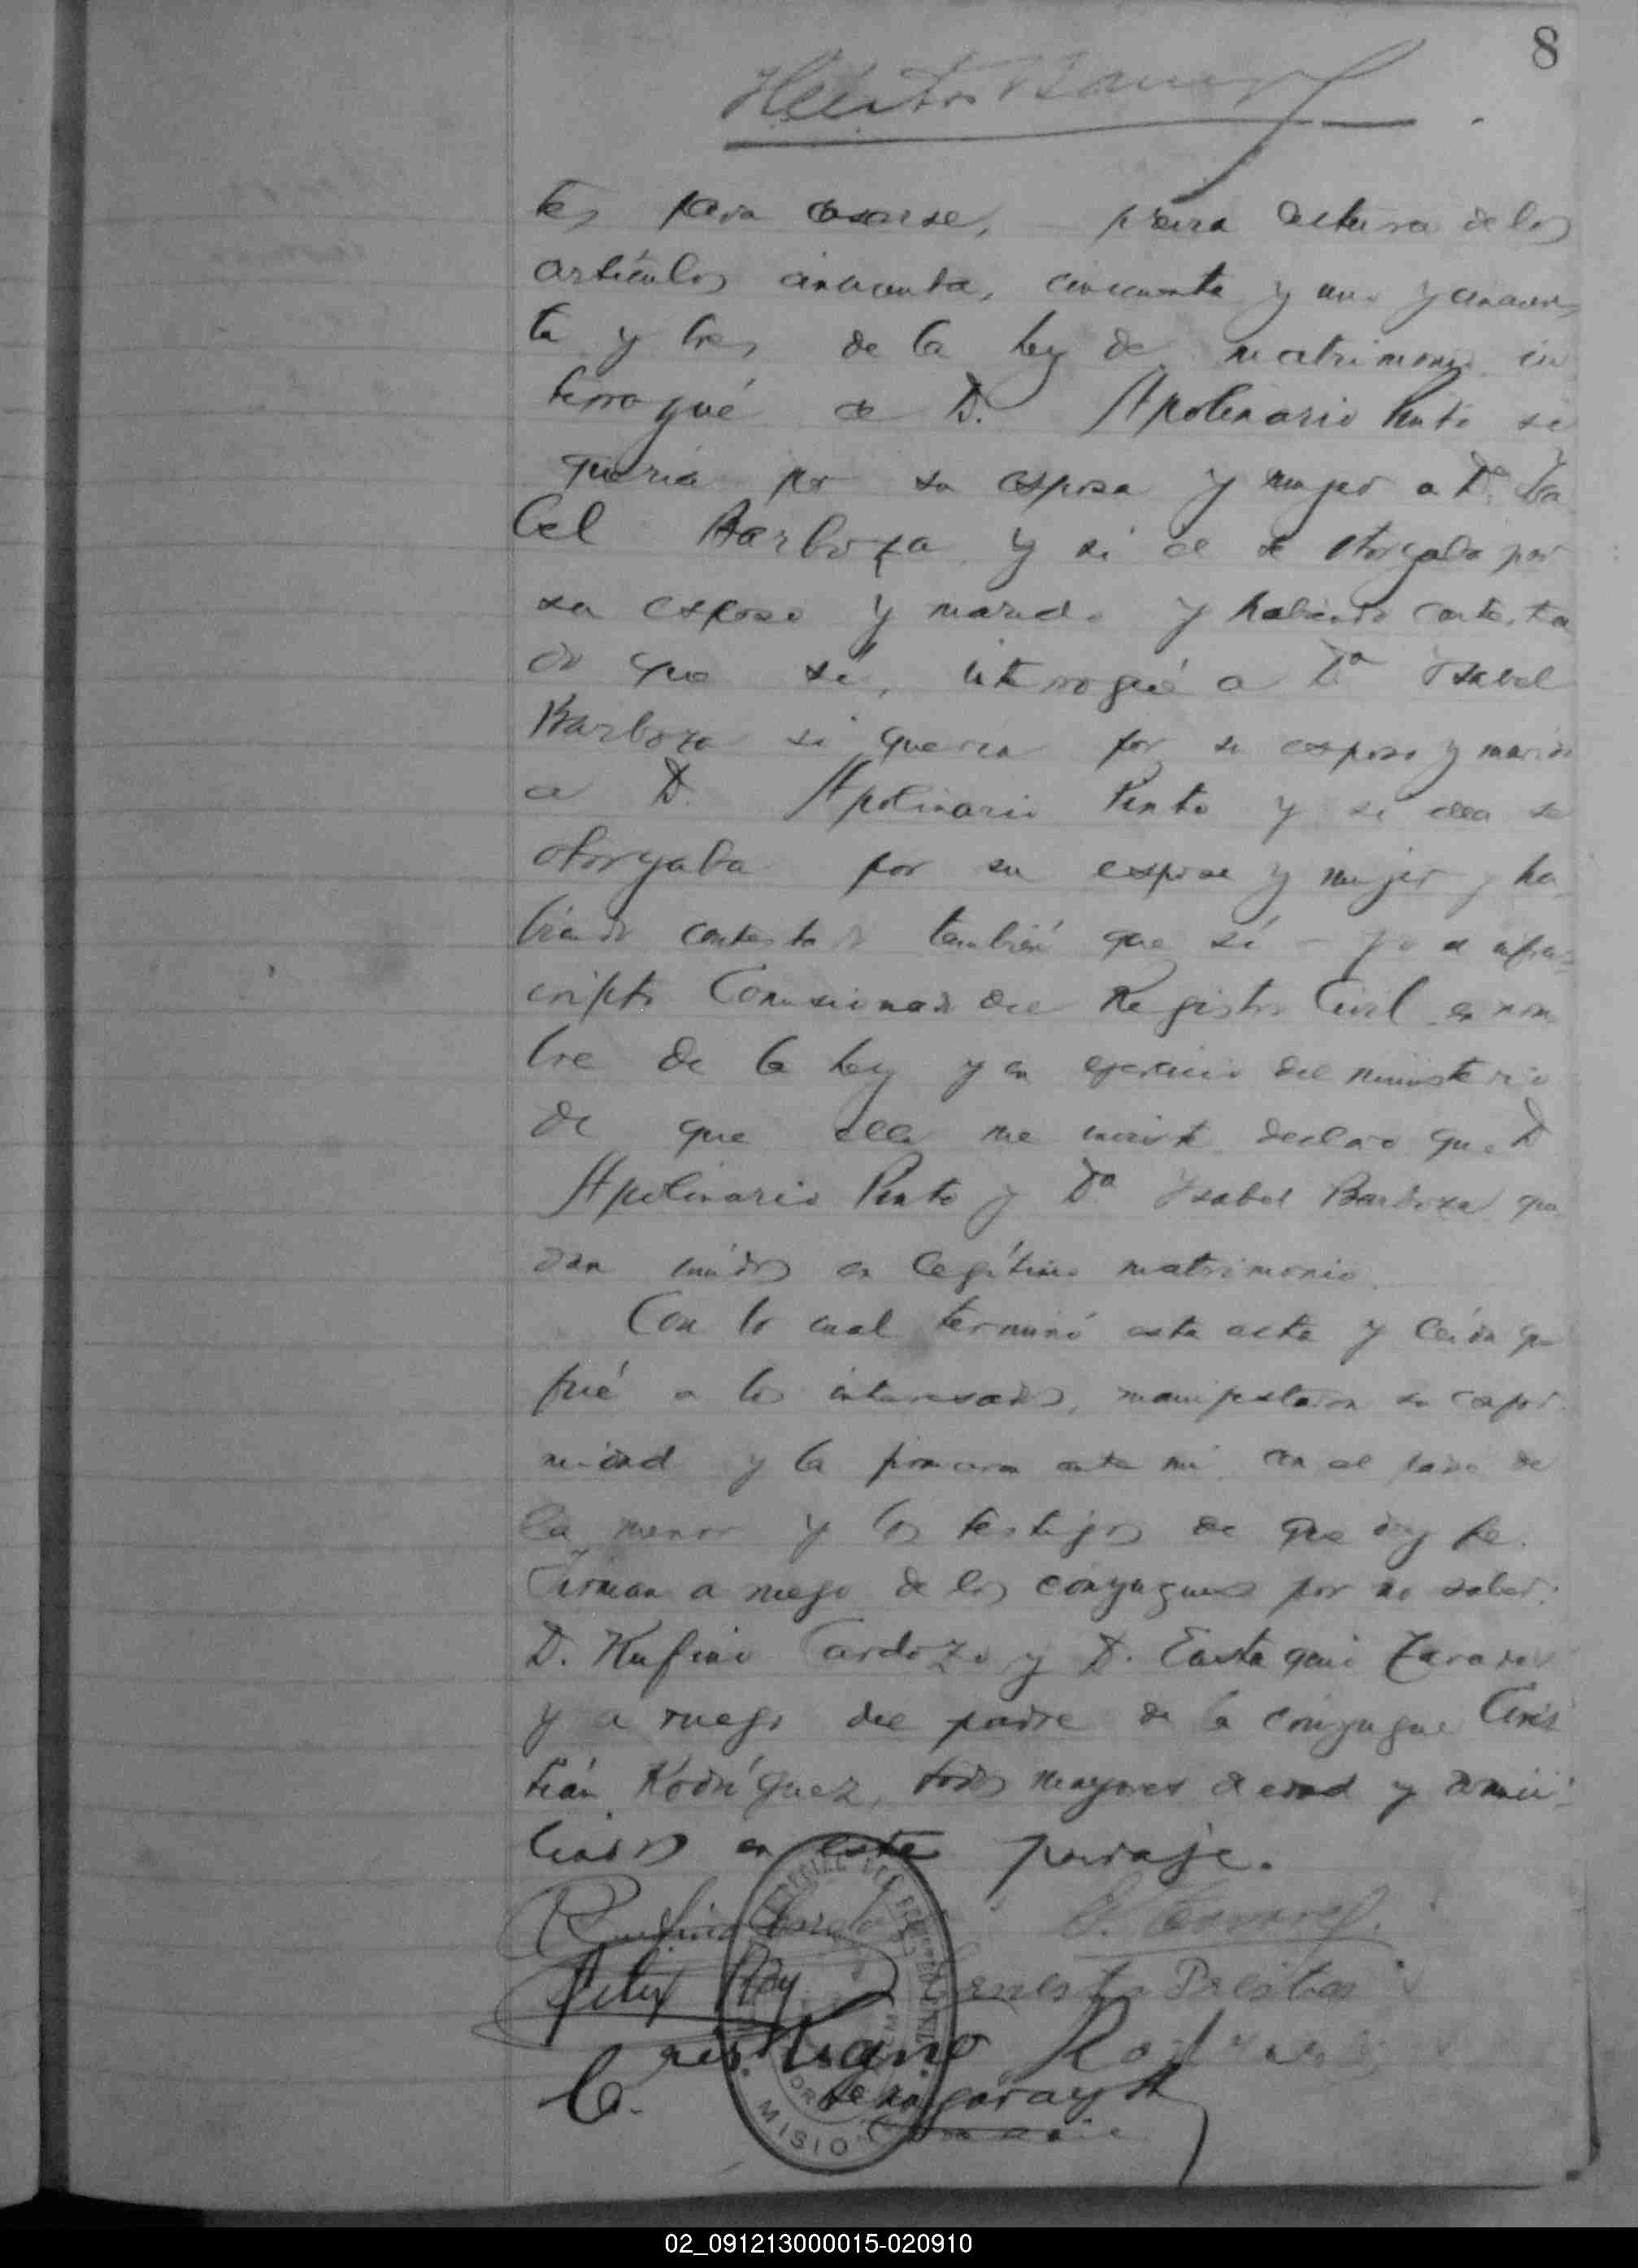 8
tes para casarse, previa lectura de los
artículos cincuenta, cincuenta y uno y cincuen
ta y tres de la ley de matrimonio in
terrogué a D. Apolinario Pinto si
quería por su esposa y mujer a Dª Isa
bel Barboza y si él se otorgaba por
su esposo y marido y habiendo contesta
do que sí, interrogué a Dª Isabel
Barboza si quería por su esposo y marido
a D. Apolinario Pinto y si ella se
otorgaba por su esposa y mujer y ha
biendo contestado también que sí - yo el infra
cripto Comisionado del Registro Civil en nom
bre de la ley y en ejercicio del ministerio
de que ella me inviste declaro que D
Apolinario Pinto y Dª Ysabel Barboza que
dan unidos en legítimo matrimonio.
Con lo cual terminó esta acta y leída que
fué a los interesados, manifestaron su confor
midad y la firmaron ante mí con el padre de
la menor y los testigos de que doy fe.
Firman a ruego de los cónyugues por no saber:
D. Rufino Cardozo y D. Eustaquio
y a ruego del padre de la cónyugue Cris
tián Rodríguez, todos mayores de edad y domici
liados en este paraje.
Rufino Cardozo
Felix Ernesto
Cristiano Rodriguez
C.
MISIO
02_091213000015-020910